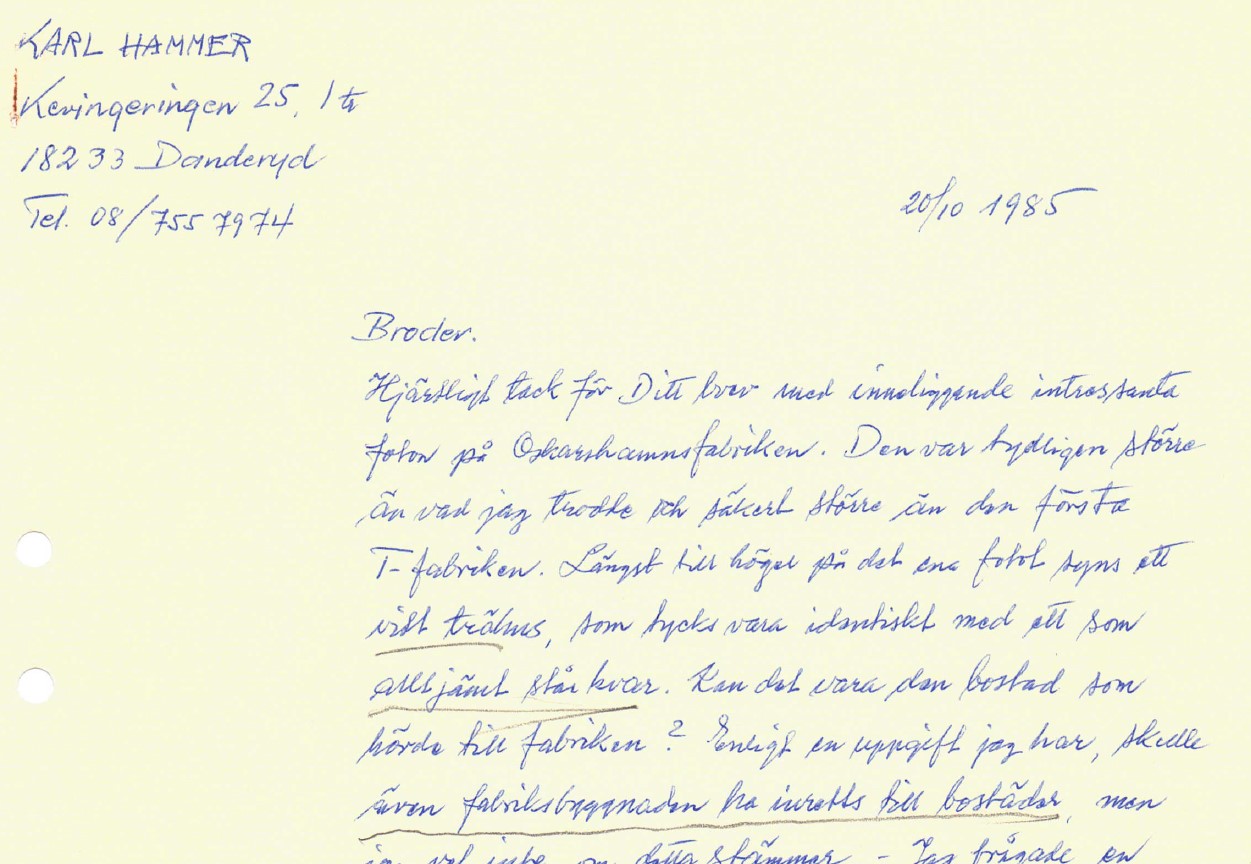 KARL HAMMER
Kevingeringen 25, 1 tr
182 33 Danderyd
Tel. 08/755 7974
20/10 1985
Broder.
Hjärtligt tack för Ditt brev med inneliggande intressanta
foton på Oskarshamnsfabriken. Den var tydligen större
än vad jag trodde och säkert större än den första
T-fabriken. Längst till höger på det ena fotot syns ett
vitt trähus, som tycks vara identiskt med ett som
alltjämt står kvar. Kan det vara den bostad som
hörde till fabriken? Enligt en uppgift jag har, skulle
även fabriksbyggnaden ha inretts till bostäder, men
jag vet inte om detta stämmer - Jag frågade en